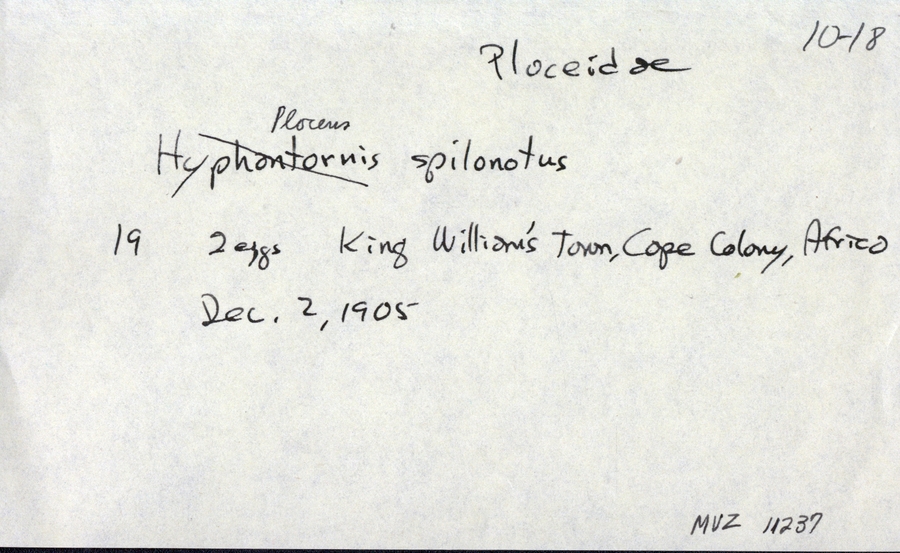 10-18
Ploceidae
Ploceus
Hyphantornis spilonotus
19 2 eggs King William's Town, Cape Colony, Africa
Dec. 2, 1905
MVZ 11237